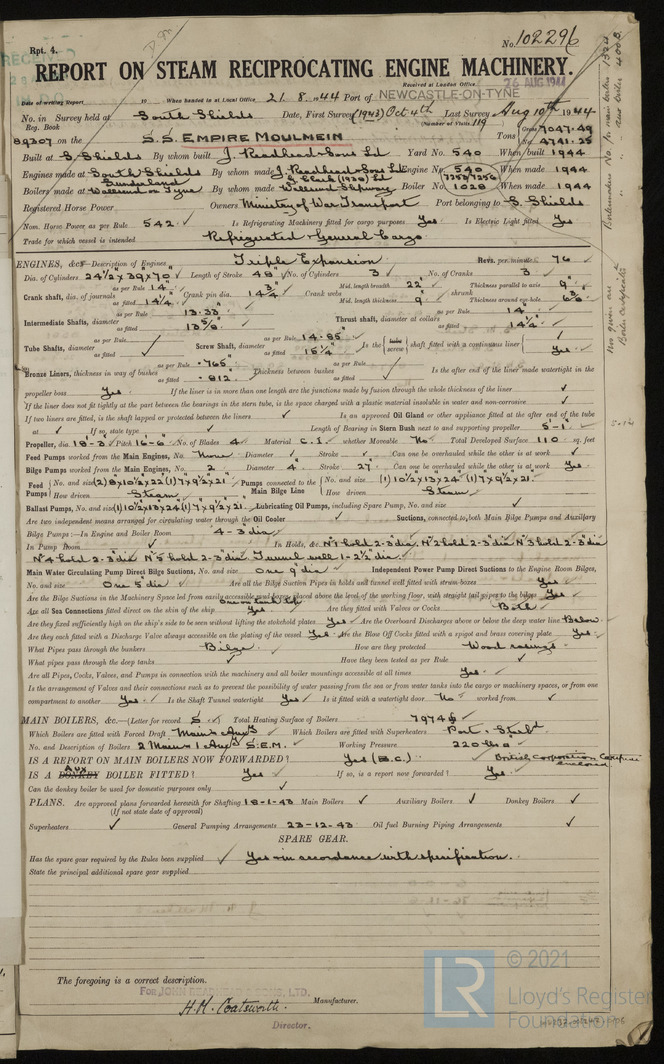 Rpt. 4.
No. 102296
REPORT ON STEAM RECIPROCATING ENGINE MACHINERY.
Received at London Office 26 AUG 1944
Date of writing Report 19 When handed in at Local Office 21. 8. 1944 Port of NEWCASTLE-ON-TYNE
No. in Survey held at South Shields Date, First Survey (1943) Oct 4th Last Survey Aug 10th 1944
Reg. Book (Number of Visits 119
89307 on the S.S. EMPIRE MOULMEIN Tons Gross 7047.49
4741.25
Built at S. Shields By whom built J. Readhead & Sons Ld Yard No. 540 When built 1944
Engines made at South Shields By whom made J. Readhead & Sons Ld Engine No. 540 When made 1944
Sunderland G. Clark (1938) Ld 7255/7256
Boilers made at Wallsend on Tyne By whom made Wallsend Slipway Boiler No. 1028 When made 1944
Registered Horse Power Owners Ministry of War Transport Port belonging to S. Shields
Nom. Horse Power as per Rule 542 Is Refrigerating Machinery fitted for cargo purposes Yes Is Electric Light fitted Yes
Trade for which vessel is intended Refrigerated & General Cargo
ENGINES, &c.—Description of Engines Triple Expansion Revs. per minute 76
Dia. of Cylinders 24½" x 39" x 70" Length of Stroke 48" No. of Cylinders 3 No. of Cranks 3
Crank shaft, dia. of journals as per Rule 14" as fitted 14¼" Crank pin dia. 14¾" Crank webs Mid. length breadth 22" Mid. length thickness 9" shrunk Thickness parallel to axis 9" Thickness around eye-hole
Intermediate Shafts, diameter as per Rule 13.33" as fitted 13⅝" Thrust shaft, diameter at collars as per Rule 14" as fitted 14¼"
Tube Shafts, diameter as per Rule as fitted Screw Shaft, diameter as per Rule 14.85" as fitted 15¼" Is the tube screw shaft fitted with a continuous liner Yes
Bronze Liners, thickness in way of bushes as per Rule .765" as fitted .812" Thickness between bushes as per Rule as fitted Is the after end of the liner made watertight in the
propeller boss Yes If the liner is in more than one length are the junctions made by fusion through the whole thickness of the liner
If the liner does not fit tightly at the part between the bearings in the stern tube, is the space charged with a plastic material insoluble in water and non-corrosive
If two liners are fitted, is the shaft lapped or protected between the liners Is an approved Oil Gland or other appliance fitted at the after end of the tube
at If so, state type Length of Bearing in Stern Bush next to and supporting propeller 5'-1"
Propeller, dia. 18'-3" Pitch 16'-6" No. of Blades 4 Material C.I. whether Moveable No Total Developed Surface 110 sq. feet
Feed Pumps worked from the Main Engines, No. None Diameter Stroke Can one be overhauled while the other is at work
Bilge Pumps worked from the Main Engines, No. 2 Diameter 4" Stroke 27" Can one be overhauled while the other is at work Yes
Feed Pumps No. and size (2) 8" x 10½" x 22" (1) 7" x 9½" x 21" Pumps connected to the Main Bilge Line No. and size (1) 10½" x 13" x 24" (1) 7" x 9½" x 21"
How driven Steam How driven Steam
Ballast Pumps, No. and size (1) 10½" x 13" x 24" (1) 7" x 9½" x 21" Lubricating Oil Pumps, including Spare Pump, No. and size
Are two independent means arranged for circulating water through the Oil Cooler Suctions, connected to both Main Bilge Pumps and Auxiliary
Bilge Pumps:—In Engine and Boiler Room 4 - 3" dia
In Pump Room In Holds, &c. No 1 hold 2-3" dia, No 2 hold 2-3" dia No 3 hold 2-3" dia
No 4 hold 2-3" dia No 5 hold 2-3" dia. Tunnel well 1-2½" dia.
Main Water Circulating Pump Direct Bilge Suctions, No. and size One 9" dia Independent Power Pump Direct Suctions to the Engine Room Bilges,
No. and size One 5" dia Are all the Bilge Suction Pipes in holds and tunnel well fitted with strum-boxes Yes
Are the Bilge Suctions in the Machinery Space led from easily accessible mud boxes, placed above the level of the working floor, with straight tail pipes to the bilge Yes
Are all Sea Connections fitted direct on the skin of the ship Yes Are they fitted with Valves or Cocks Both
Are they fixed sufficiently high on the ship's side to be seen without lifting the stokehold plates Yes Are the Overboard Discharges above or below the deep water line Below
Are they each fitted with a Discharge Valve always accessible on the plating of the vessel Yes Are the Blow Off Cocks fitted with a spigot and brass covering plate Yes
What Pipes pass through the bunkers Bilge How are they protected Wood casings
What pipes pass through the deep tanks Have they been tested as per Rule
Are all Pipes, Cocks, Valves, and Pumps in connection with the machinery and all boiler mountings accessible at all times Yes
Is the arrangement of Valves and their connections such as to prevent the possibility of water passing from the sea or from water tanks into the cargo or machinery spaces, or from one
compartment to another Yes Is the Shaft Tunnel watertight Yes Is it fitted with a watertight door No worked from
MAIN BOILERS, &c.—(Letter for record S Total Heating Surface of Boilers 7974
Which Boilers are fitted with Forced Draft Main & Auxy Which Boilers are fitted with Superheaters Port & Starbd
No. and Description of Boilers 2 Main & 1 Auxy S.E.M. Working Pressure 220 lbs
IS A REPORT ON MAIN BOILERS NOW FORWARDED? Yes (B.C.) British Corporation Certificate enclosed
IS A DONKEY Aux BOILER FITTED? Yes If so, is a report now forwarded? Yes
Can the donkey boiler be used for domestic purposes only
PLANS. Are approved plans forwarded herewith for Shafting 18-1-43 Main Boilers Auxiliary Boilers Donkey Boilers
(If not state date of approval)
Superheaters General Pumping Arrangements 23-12-43 Oil fuel Burning Piping Arrangements
SPARE GEAR.
Has the spare gear required by the Rules been supplied Yes & in accordance with specification.
State the principal additional spare gear supplied
The foregoing is a correct description.
FOR JOHN READHEAD & SONS, LTD.
H.M. Coatsworth. Manufacturer.
Director.
© 2021
LR
Lloyd's Register
Foundation